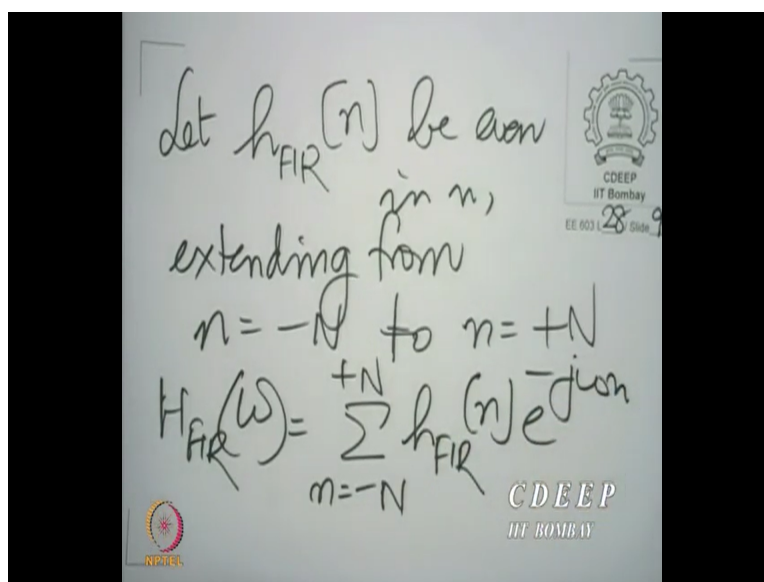 Let h_FIR[n] be even
in n,
extending from
n = -N to n = +N
H_FIR(ω) = Σ_{n=-N}^{+N} h_FIR[n] e^{-jωn}
CDEEP
IIT Bombay
EE 603 L 28 / Slide 9
CDEEP
IIT BOMBAY
NPTEL